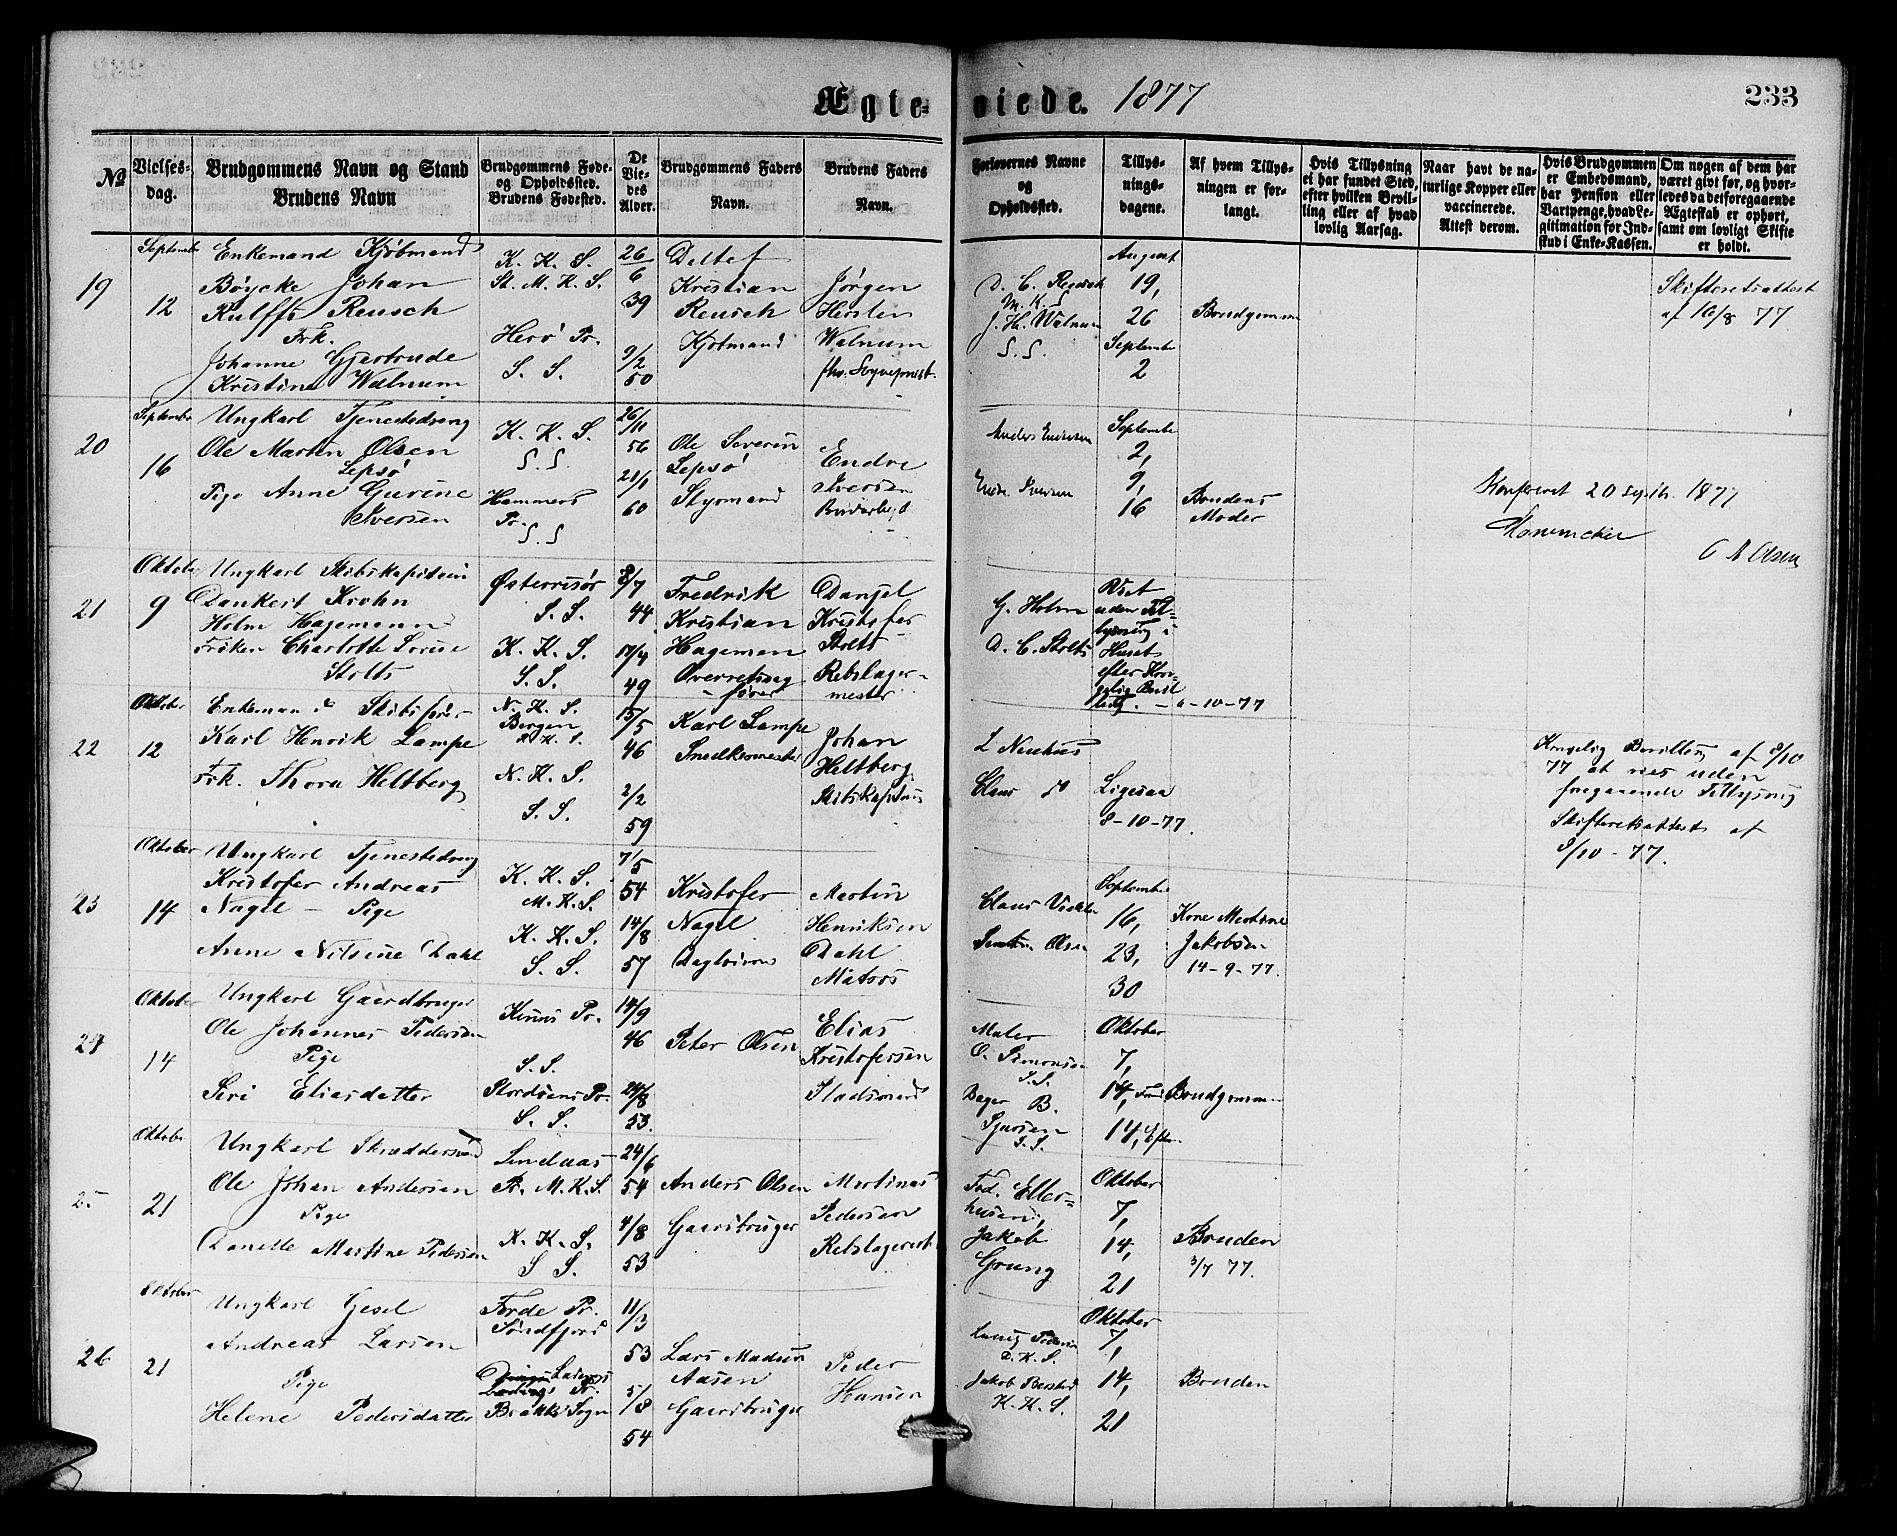 Ægte- viede. 1877
233
№
Vielses-
dag.
Brudgommens Navn og Stand
Brudens Navn
Brudgommens Føde-
og Opholdssted.
Brudens Fødested.
De
Vie-
des
Alder.
Brudgommens Faders
Navn.
Brudens Faders
Navn.
Forlovernes Navne
og
Opholdssted.
Tillys-
nings-
dagene.
Af hvem Tillys-
ningen er for-
langt.
Hvis Tillysning
ei har fundet Sted,
efter hvilken Bevil-
ling eller af hvad
lovlig Aarsag.
Naar havt de na-
turlige Kopper eller
vaccinerede.
Attest derom.
Hvis Brudgommen
er Embedsmand,
har Pension eller
Vartpenge, hvad Le-
gitimation for Ind-
skud i Enke-Kassen.
Om nogen af dem har
været givt før, og hvor-
ledes da det foregaaende
Ægteskab er ophørt,
samt om lovligt Skifte
er holdt.
19
September
12
Enkemand Kjøbmand
Bøycke Johan
Rulffs Reusch
Frk.
Johanne Gjertrude
Kristine Walnum
K. K. S.
St. M. K. S.
Herø Pr.
S. S.
26
6
39
9/2
50
Detlef
Kristian
Reusch
Kjøbmand
Jørgen
Hersleb
Walnum
fhv. Sognepræst.
D. C. Reusch
M. K. S
J. H. Walnum
S. S.
August
19,
26
September
2
Brudgommen
Skifteretsattest
af 16/8 77
20
September
16
Ungkarl Tjenestedreng
Ole Martin Olsen
Lepsø
Pige Anne Gurine
Iversen
K. K. S.
S. S.
Hammers
Pr.
S. S
26/11
56
21/1
60
Ole Severin
Lepsø
Styrmand
Endre
Iversen
Anders Endresen
Endre Iversen
September
2,
9,
16
Brudens
Moder
Konfereret 20 septbr. 1877
O A Olsen
21
Oktober
9
Ungkarl Skibskapitain
Dankert Krohn
Holm Hagemann
Frøken Charlotte Louise
Stolts
Østerrisør
S. S.
K. K. S.
S. S.
8/7
44
17/4
49
Fredrik
Kristian
Hagemen
Overretssag-
fører
Danjel
Kristofer
Stolts
Rebslager-
mester
G. Holm
D. C. Stolts
Viet
uden Til-
lysning i
Huset
efter Kon-
gelig Bevil
ling. - 6-10-77
22
Oktober
12
Enkemand Skibsfører
Karl Henrik Lampe
Frk. Thora Heltberg
N. K. S.
Bergen
N. K. S.
S. S.
15/5
46
2/2
59
Karl Lampe
Snedkermester
Johan
Heltberg
Skibskaptein
L Neuhus
Claus do
Ligesaa
8-10-77.
Kongelig Bevilling af 8/10
77 at vies uden
foregaaende Tillysning
Skifteretsattest af
8/10 - 77.
23
Oktober
14
Ungkarl Tjenestedreng
Kristofer Andreas
Nagel - Pige
Anne Nilsine Dahl
K. K. S.
M. K. S.
K. K. S.
S. S.
7/5
54
14/8
57
Kristofer
Nagel
Martin
Henriksen
Dahl
Matros
Claus
Olsen
September
16,
23,
30
Kone Martine
Jakobsen
14-9-77.
24
Oktober
14
Ungkarl Gaardbruger
Ole Johannes Pedersen
Pige
Siri Eliasdatter
Kinns Pr.
S. S.
Stordøens Pr.
S. S.
14/9
46
24/8
53.
Peter Olsen
Elias
Kristofersen
Pladsmand
Maler
O. Simonsen
S. S.
Bager B.
S. S.
Oktober
7,
14, Form
14, Efterm.
Brudgommen
25
Oktober
21
Ungkarl Skræddersvend
Ole Johan Andersen
Pige
Danelle Martine Pedersen
Lindaas
Pr. M. K. S.
K. K. S.
S S.
24/6
54
4/8
53
Anders Olsen
Gaardbruger
Martinus
Pedersen
Rebslagersv.
Fred. Eller-
husen,
Jakob
Grung
Oktober
7,
14,
21
Bruden
3/7 77.
26
Oktober
21
Ungkarl Gesel
Andreas Larsen
Pige
Helene Pedersdatter
Førde Pr.
Søndfjord
Brække Sogn
11/3
53
5/8
54
Lars Madsen
Aasen
Gaardbruger
Peder
Hansen
Pedersen
D. K. S.
Jakob
K. K. S.
Oktober
7,
14,
21
Bruden